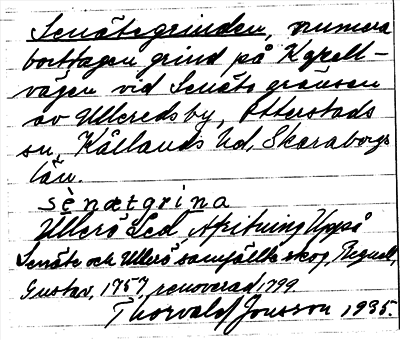 Senätegrinden, numera
borttagen grind på Kgrell-
vägen vid Senäts gränsen
av Ulleredsby, Otterstads
sn, Kållands hd, Skaraborgs
län.
sènætgrina
Ullerö Led, Afritning Uppå
Senäte och Ullerö samfällte skog, Regnell,
Gustav, 1757, renoverad 1799.
Thorvald Jonsson 1935.